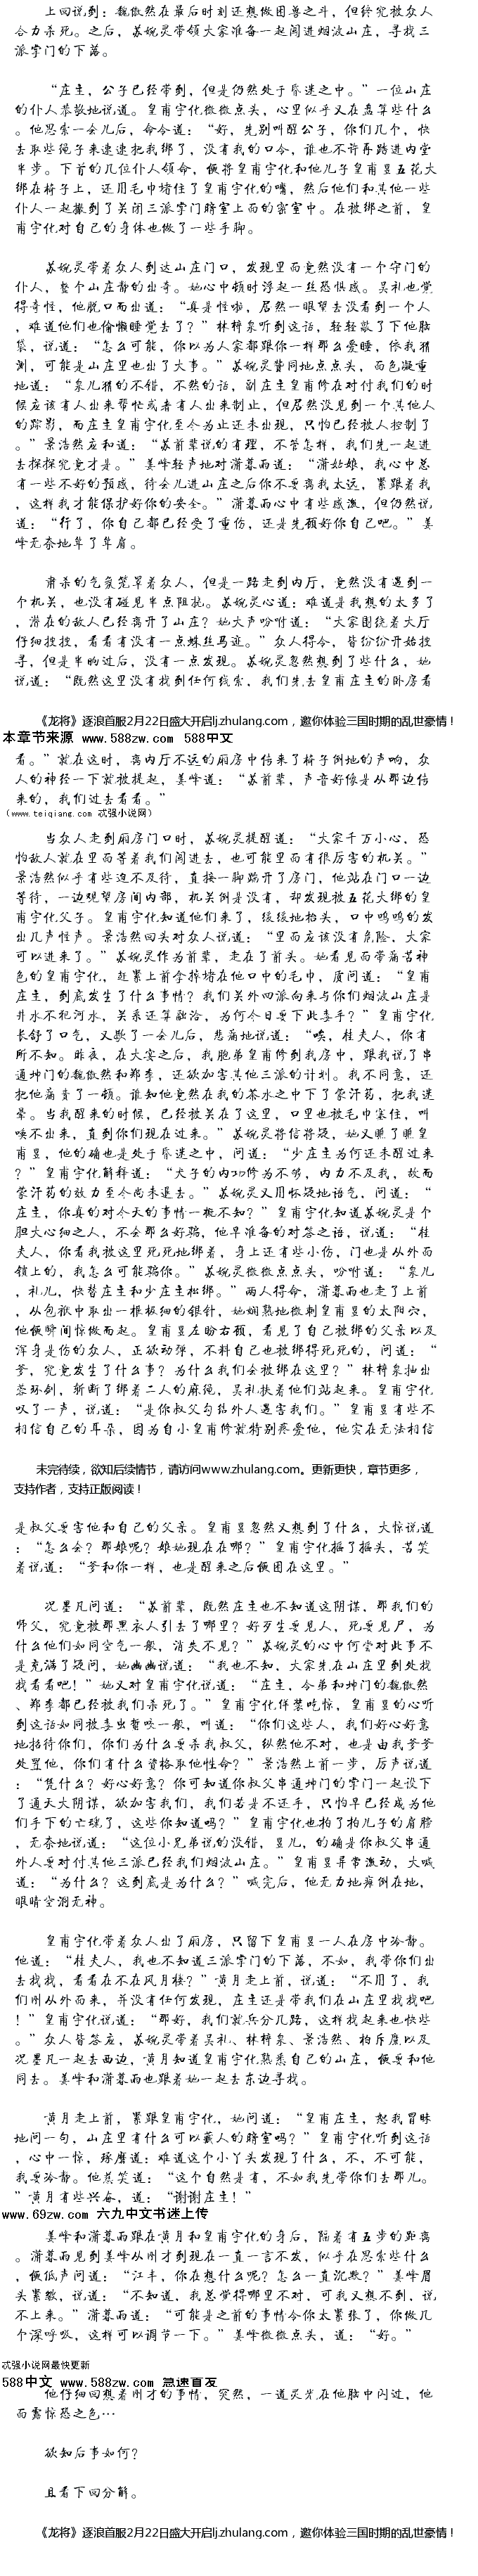 上回说到：魏傲然在最后时刻还想做困兽之斗，但终究被众人
合力杀死。之后，苏婉灵带领大家准备一起闯进烟波山庄，寻找三
派掌门的下落。
“庄主，公子已经带到，但是仍然处于昏迷之中。”一位山庄
的仆人恭敬地说道。皇甫宇化微微点头，心里似乎又在盘算些什么
。他思索一会儿后，命令道：“好，先别叫醒公子，你们几个，快
去取些绳子来速速把我绑了，没有我的口令，谁也不许再踏进内堂
半步。下首的几位仆人领命，便将皇甫宇化和他儿子皇甫昱五花大
绑在椅子上，还用毛巾堵住了皇甫宇化的嘴，然后他们和其他一些
仆人一起撤到了关闭三派掌门暗室上面的密室中。在被绑之前，皇
甫宇化对自己的身体也做了一些手脚。
苏婉灵带着众人到达山庄门口，发现里面竟然没有一个守门的
仆人，整个山庄静的出奇。她心中顿时浮起一丝恐惧感。吴礼也觉
得奇怪，他脱口而出道：“真是怪啦，居然一眼望去没看到一个人
，难道他们也偷懒睡觉去了？”林梓泉听到这话，轻轻敲了下他脑
袋，说道：“怎么可能，你以为人家都跟你一样那么爱睡，依我猜
测，可能是山庄里也出了大事。”苏婉灵赞同地点点头，面色凝重
地道：“泉儿猜的不错，不然的话，副庄主皇甫修在对付我们的时
候应该有人出来帮忙或者有人出来制止，但居然没见到一个其他人
的踪影，而庄主皇甫宇化至今为止还未出现，只怕已经被人控制了
。”景浩然应和道：“苏前辈说的有理，不管怎样，我们先一起进
去探探究竟才是。”姜峰轻声地对潇暮雨道：“潇姑娘，我心中总
有一些不好的预感，待会儿进山庄之后你不要离我太远，紧跟着我
，这样我才能保护好你的安全。”潇暮雨心中有些感激，但仍然说
道：“行了，你自己都已经受了重伤，还是先顾好你自己吧。”姜
峰无奈地耸了耸肩。
肃杀的气氛笼罩着众人，但是一路走到内厅，竟然没有遇到一
个机关，也没有碰见半点阻扰。苏婉灵心道：难道是我想的太多了
，潜在的敌人已经离开了山庄？她大声吩咐道：“大家围绕着大厅
仔细搜搜，看看有没有一点蛛丝马迹。”众人得令，皆纷纷开始搜
寻，但是半晌过后，没有一点发现。苏婉灵忽然想到了些什么，她
说道：“既然这里没有找到任何线索，我们先去皇甫庄主的卧房看
《龙将》逐浪首服2月22日盛大开启lj.zhulang.com，邀你体验三国时期的乱世豪情！
本章节来源 www.588zw.com 588中文
看。”就在这时，离内厅不远的厢房中传来了椅子倒地的声响，众
人的神经一下就被提起，姜峰道：“苏前辈，声音好像是从那边传
来的，我们过去看看。”
（www.teiqiang.com 忒强小说网）
当众人走到厢房门口时，苏婉灵提醒道：“大家千万小心，恐
怕敌人就在里面等着我们闯进去，也可能里面有很厉害的机关。”
景浩然似乎有些迫不及待，直接一脚踹开了房门，他站在门口一边
等待，一边观望房间内部，机关倒是没有，却发现被五花大绑的皇
甫宇化父子。皇甫宇化知道他们来了，缓缓地抬头，口中呜呜的发
出几声怪声。景浩然回头对众人说道：“里面应该没有危险，大家
可以进来了。”苏婉灵作为前辈，走在了前头。她看见面带痛苦神
色的皇甫宇化，赶紧上前拿掉堵在他口中的毛巾，质问道：“皇甫
庄主，到底发生了什么事情？我们关外四派向来与你们烟波山庄是
井水不犯河水，关系还算融洽，为何今日要下此毒手？”皇甫宇化
长舒了口气，又歇了一会儿后，悲痛地说道：“唉，桂夫人，你有
所不知。昨夜，在大宴之后，我胞弟皇甫修到我房中，跟我说了串
通坤门的魏傲然和郑季，还欲加害其他三派的计划。我不同意，还
把他痛责了一顿。谁知他竟然在我的茶水之中下了蒙汗药，把我迷
晕。当我醒来的时候，已经被关在了这里，口里也被毛巾塞住，叫
唤不出来，直到你们现在过来。”苏婉灵将信将疑，她又瞧了瞧皇
甫昱，他的确也是处于昏迷之中，问道：“少庄主为何还未醒过来
？”皇甫宇化解释道：“犬子的内功修为不够，内力不及我，故而
蒙汗药的效力至今尚未退去。”苏婉灵又用怀疑地语气，问道：“
庄主，你真的对今天的事情一概不知？”皇甫宇化知道苏婉灵是个
胆大心细之人，不会那么好骗，他早准备的对答之语，说道：“桂
夫人，你看我被这里死死地绑着，身上还有些小伤，门也是从外面
锁上的，我怎么可能骗你。”苏婉灵微微点点头，吩咐道：“泉儿
，礼儿，快替庄主和少庄主松绑。”两人得命，潇暮雨也走了上前
，从包袱中取出一根极细的银针，她娴熟地微刺皇甫昱的太阳穴，
他便瞬间惊做而起。皇甫昱左盼右顾，看见了自己被绑的父亲以及
浑身是伤的众人，正欲动弹，不料自己也被绑得死死的，问道：“
爹，究竟发生了什么事？为什么我们会被绑在这里？”林梓泉抽出
苍环剑，斩断了绑着二人的麻绳，吴礼扶着他们站起来。皇甫宇化
叹了一声，说道：“是你叔父勾结外人逼害我们。”皇甫昱有些不
相信自己的耳朵，因为自小皇甫修就特别疼爱他，他实在无法相信
未完待续，欲知后续情节，请访问www.zhulang.com。更新更快，章节更多，
支持作者，支持正版阅读！
是叔父要害他和自己的父亲。皇甫昱忽然又想到了什么，大惊说道
：“怎么会？那娘呢？娘她现在在哪？”皇甫宇化摇了摇头，苦笑
着说道：“爹和你一样，也是醒来之后便困在这里。”
况墨凡问道：“苏前辈，既然庄主也不知道这阴谋，那我们的
师父，究竟被那黑衣人引去了哪里？好歹生要见人，死要见尸，为
什么他们如同空气一般，消失不见？”苏婉灵的心中何尝对此事不
是充满了疑问，她幽幽说道：“我也不知，大家先在山庄里到处找
找看看吧！”她又对皇甫宇化说道：“庄主，令弟和坤门的魏傲然
、郑季都已经被我们杀死了。”皇甫宇化佯装吃惊，皇甫昱的心听
到这话如同被毒虫暂咬一般，叫道：“你们这些人，我们好心好意
地招待你们，你们为什么要杀我叔父，纵然他不对，也是由我爹爹
处置他，你们有什么资格取他性命？”景浩然上前一步，厉声说道
：“凭什么？好心好意？你可知道你叔父串通坤门的掌门一起设下
了通天大阴谋，欲加害我们，我们若是不还手，只怕早已经成为他
们手下的亡魂了，这些你知道吗？”皇甫宇化也拍了拍儿子的肩膀
，无奈地说道：“这位小兄弟说的没错，昱儿，的确是你叔父串通
外人要对付其他三派已经我们烟波山庄。”皇甫昱异常激动，大喊
道：“为什么？这到底是为什么？”喊完后，他无力地瘫倒在地，
眼睛空洞无神。
皇甫宇化带着众人出了厢房，只留下皇甫昱一人在房中冷静。
他道：“桂夫人，我也不知道三派掌门的下落，不如，我带你们出
去找找，看看在不在风月楼？”黄月走上前，说道：“不用了，我
们刚从外面来，并没有任何发现，庄主还是带我们在山庄里找找吧
！”皇甫宇化说道：“那好，我们就兵分几路，这样找起来也快些
。”众人皆答应，苏婉灵带着吴礼、林梓泉、景浩然、柏斥崖以及
况墨凡一起去西边，黄月知道皇甫宇化熟悉自己的山庄，便要和他
同去。姜峰和潇暮雨也跟着她一起去东边寻找。
黄月走上前，紧跟皇甫宇化，她问道：“皇甫庄主，恕我冒昧
地问一句，山庄里有什么可以藏人的暗室吗？”皇甫宇化听到这话
，心中一惊，琢磨道：难道这个小丫头发现了什么，不，不可能，
我要冷静。他蒸笑道：“这个自然是有，不如我先带你们去那儿。
”黄月有些兴奋，道：“谢谢庄主！”
www.69zw.com 六九中文书迷上传
姜峰和潇暮雨跟在黄月和皇甫宇化的身后，隔着有五步的距离
。潇暮雨见到姜峰从刚才到现在一直一言不发，似乎在思索些什么
，便低声问道：“江丰，你在想什么呢？怎么一直沉默？”姜峰眉
头紧皱，说道：“不知道，我总觉得哪里不对，可我又想不到，说
不上来。”潇暮雨道：“可能是之前的事情令你太紧张了，你做几
个深呼吸，这样可以调节一下。”姜峰微微点头，道：“好。”
忒强小说网最快更新
588中文 www.588zw.com 急速首发
他仔细回想着刚才的事情，突然，一道灵光在他脑中闪过，他
面露惊恐之色…
欲知后事如何？
且看下回分解。
《龙将》逐浪首服2月22日盛大开启lj.zhulang.com，邀你体验三国时期的乱世豪情！